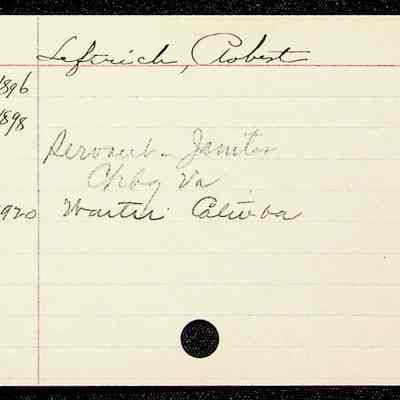 Leftrich, Robert
1896
1898
Servant - Janitor
Chbg Va
1920 Martin